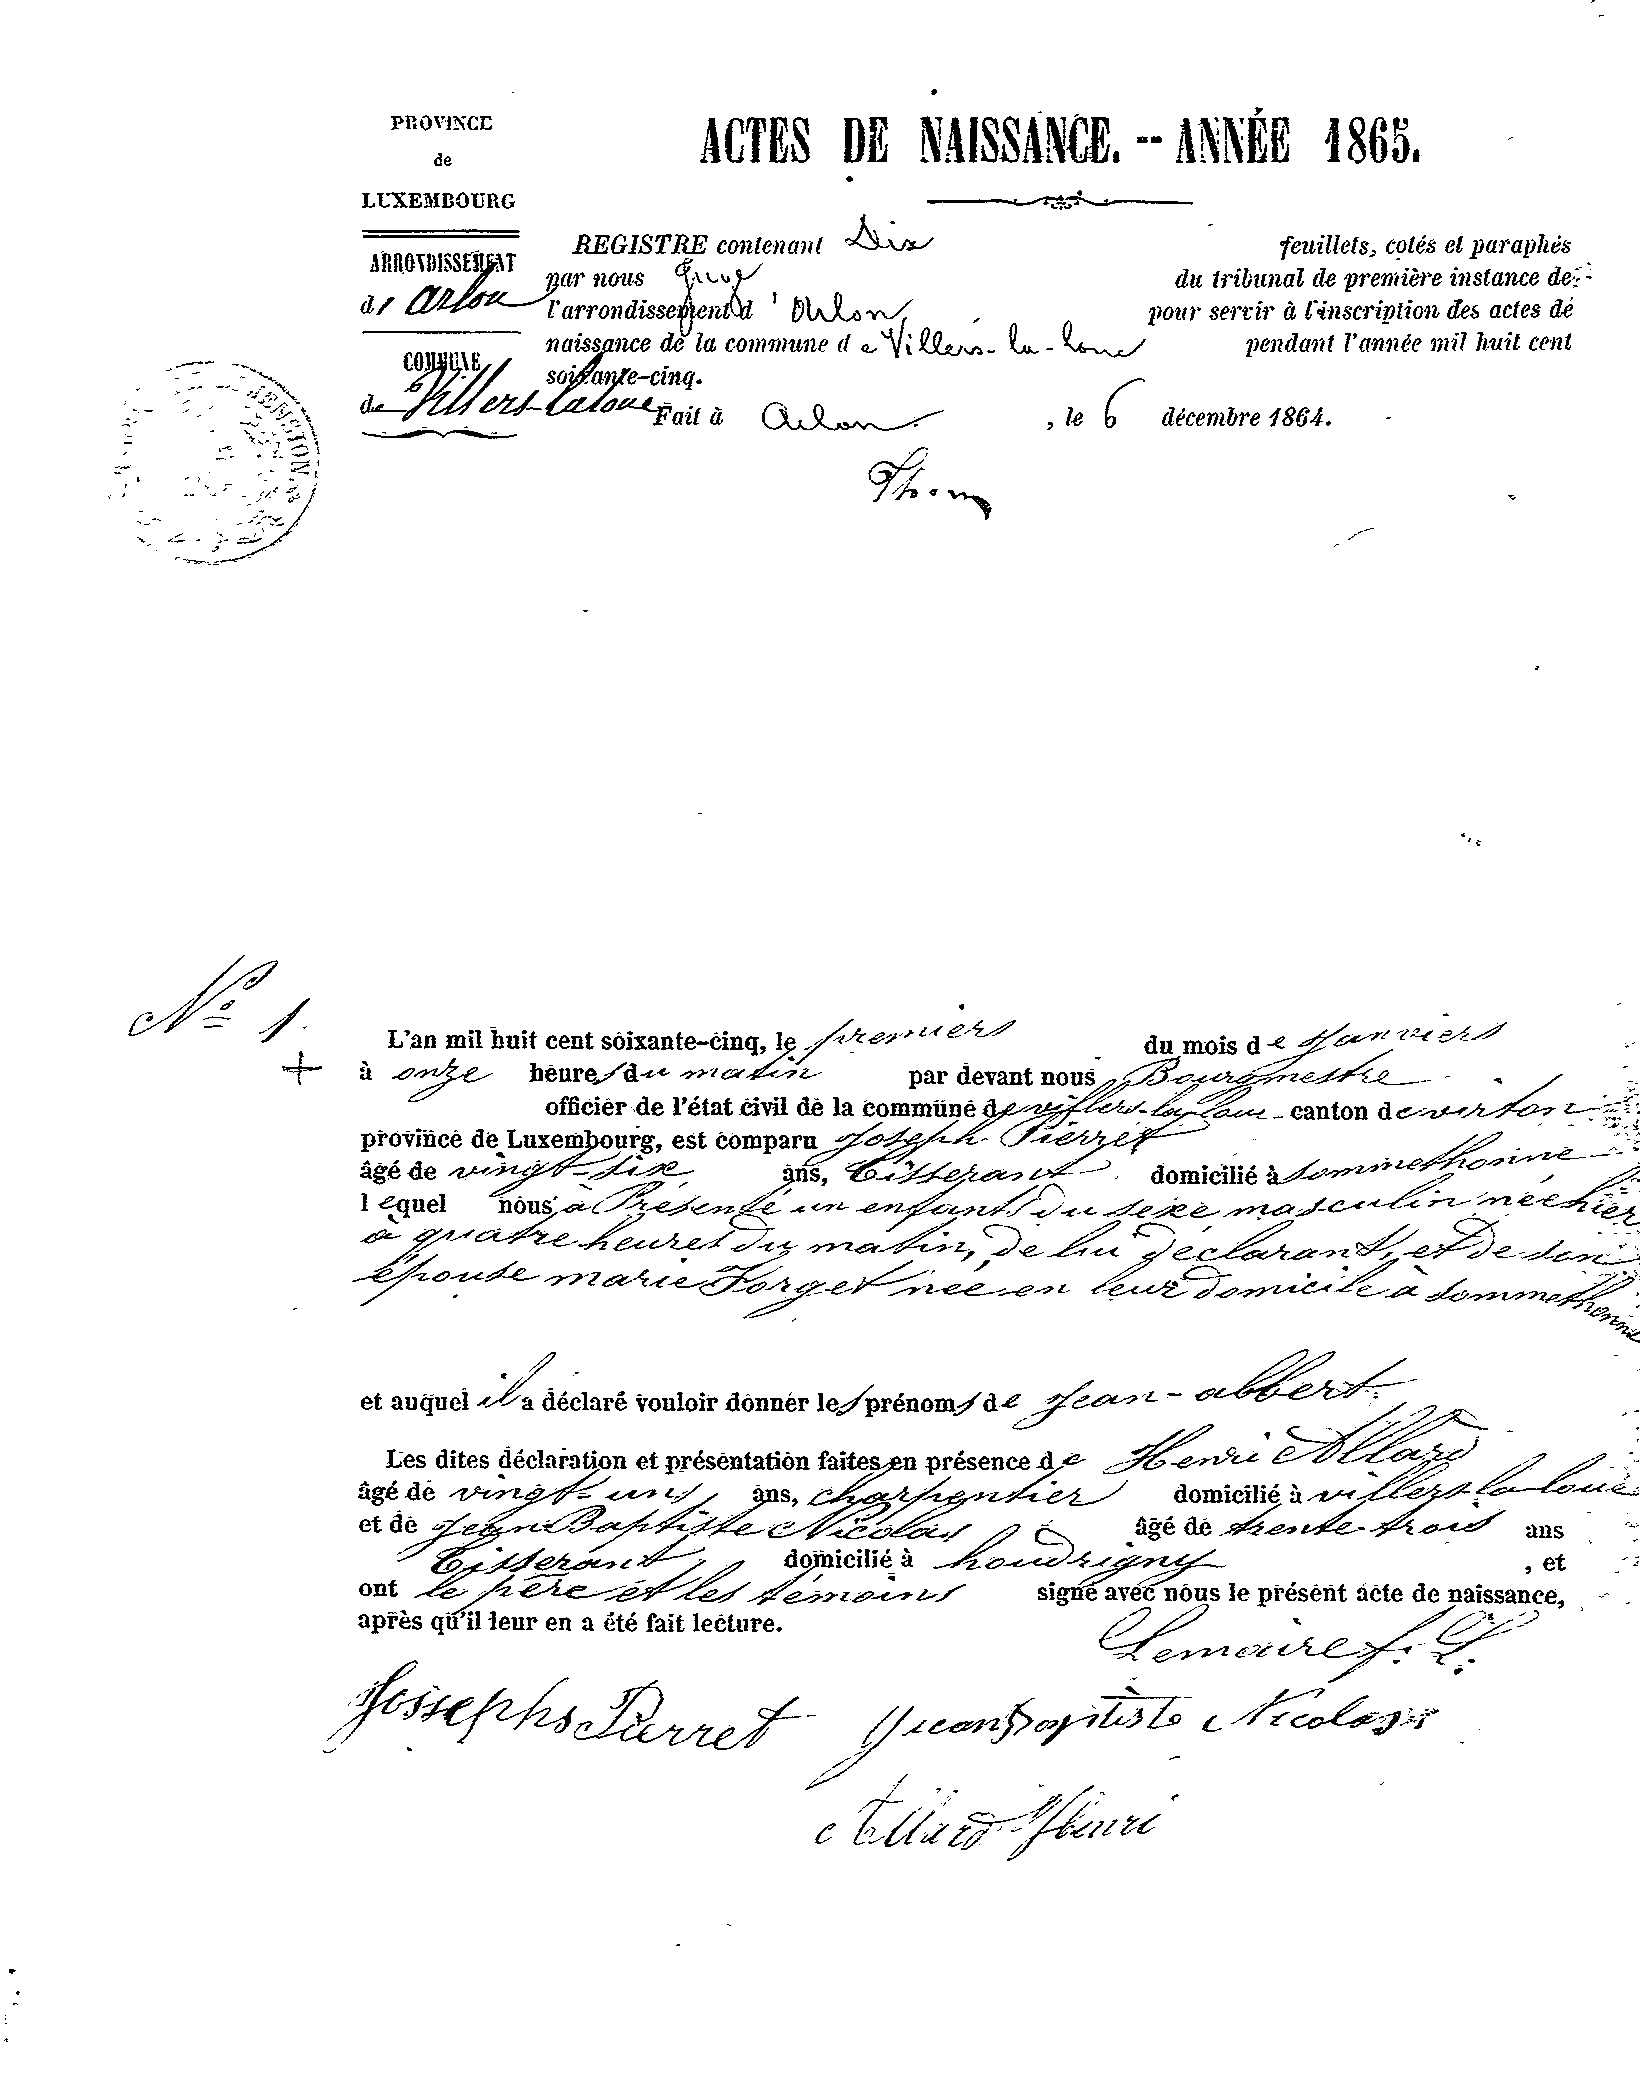 PROVINCE
de
LUXEMBOURG
ARRONDISSEMENT
d'Arlon
COMMUNE
de Villers-laloue
ACTES DE NAISSANCE. -- ANNÉE 1865.
REGISTRE contenant Dix feuillets, cotés et paraphés
par nous Juge du tribunal de première instance de
l'arrondissement d'Arlon, pour servir à l'inscription des actes de
naissance de la commune de Villers-la-loue pendant l'année mil huit cent
soixante-cinq.
Fait à Arlon, le 6 décembre 1864.
No 1
L'an mil huit cent soixante-cinq, le premiers du mois de Janviers
à onze heures du matin par devant nous Bourgmestre
officier de l'état civil de la commune de villers-la-loue canton de virton
province de Luxembourg, est comparu Joseph Pierret
âgé de vingt-six ans, Tisserant domicilié à Sommethonne
lequel nous à Présenté un enfants du sexe masculin née hier
à quatre heures du matin, de lui déclarant, et de son
épouse marie Forget née en leur domicile à Sommethonne
et auquel il a déclaré vouloir donner les prénoms de Jean-albert.
Les dites déclaration et présentation faites en présence de Henri Allard
âgé de vingt-uns ans, charpentier domicilié à villers-la-loue
et de Jean Baptiste Nicolas âgé de trente-trois ans
Tisserant, domicilié à houdrigny, et
ont le père et les témoins signé avec nous le présent acte de naissance,
après qu'il leur en a été fait lecture.
Lemaire f. L.
Jossephs Pierret Jean Baptiste Nicolas
Allard Henri